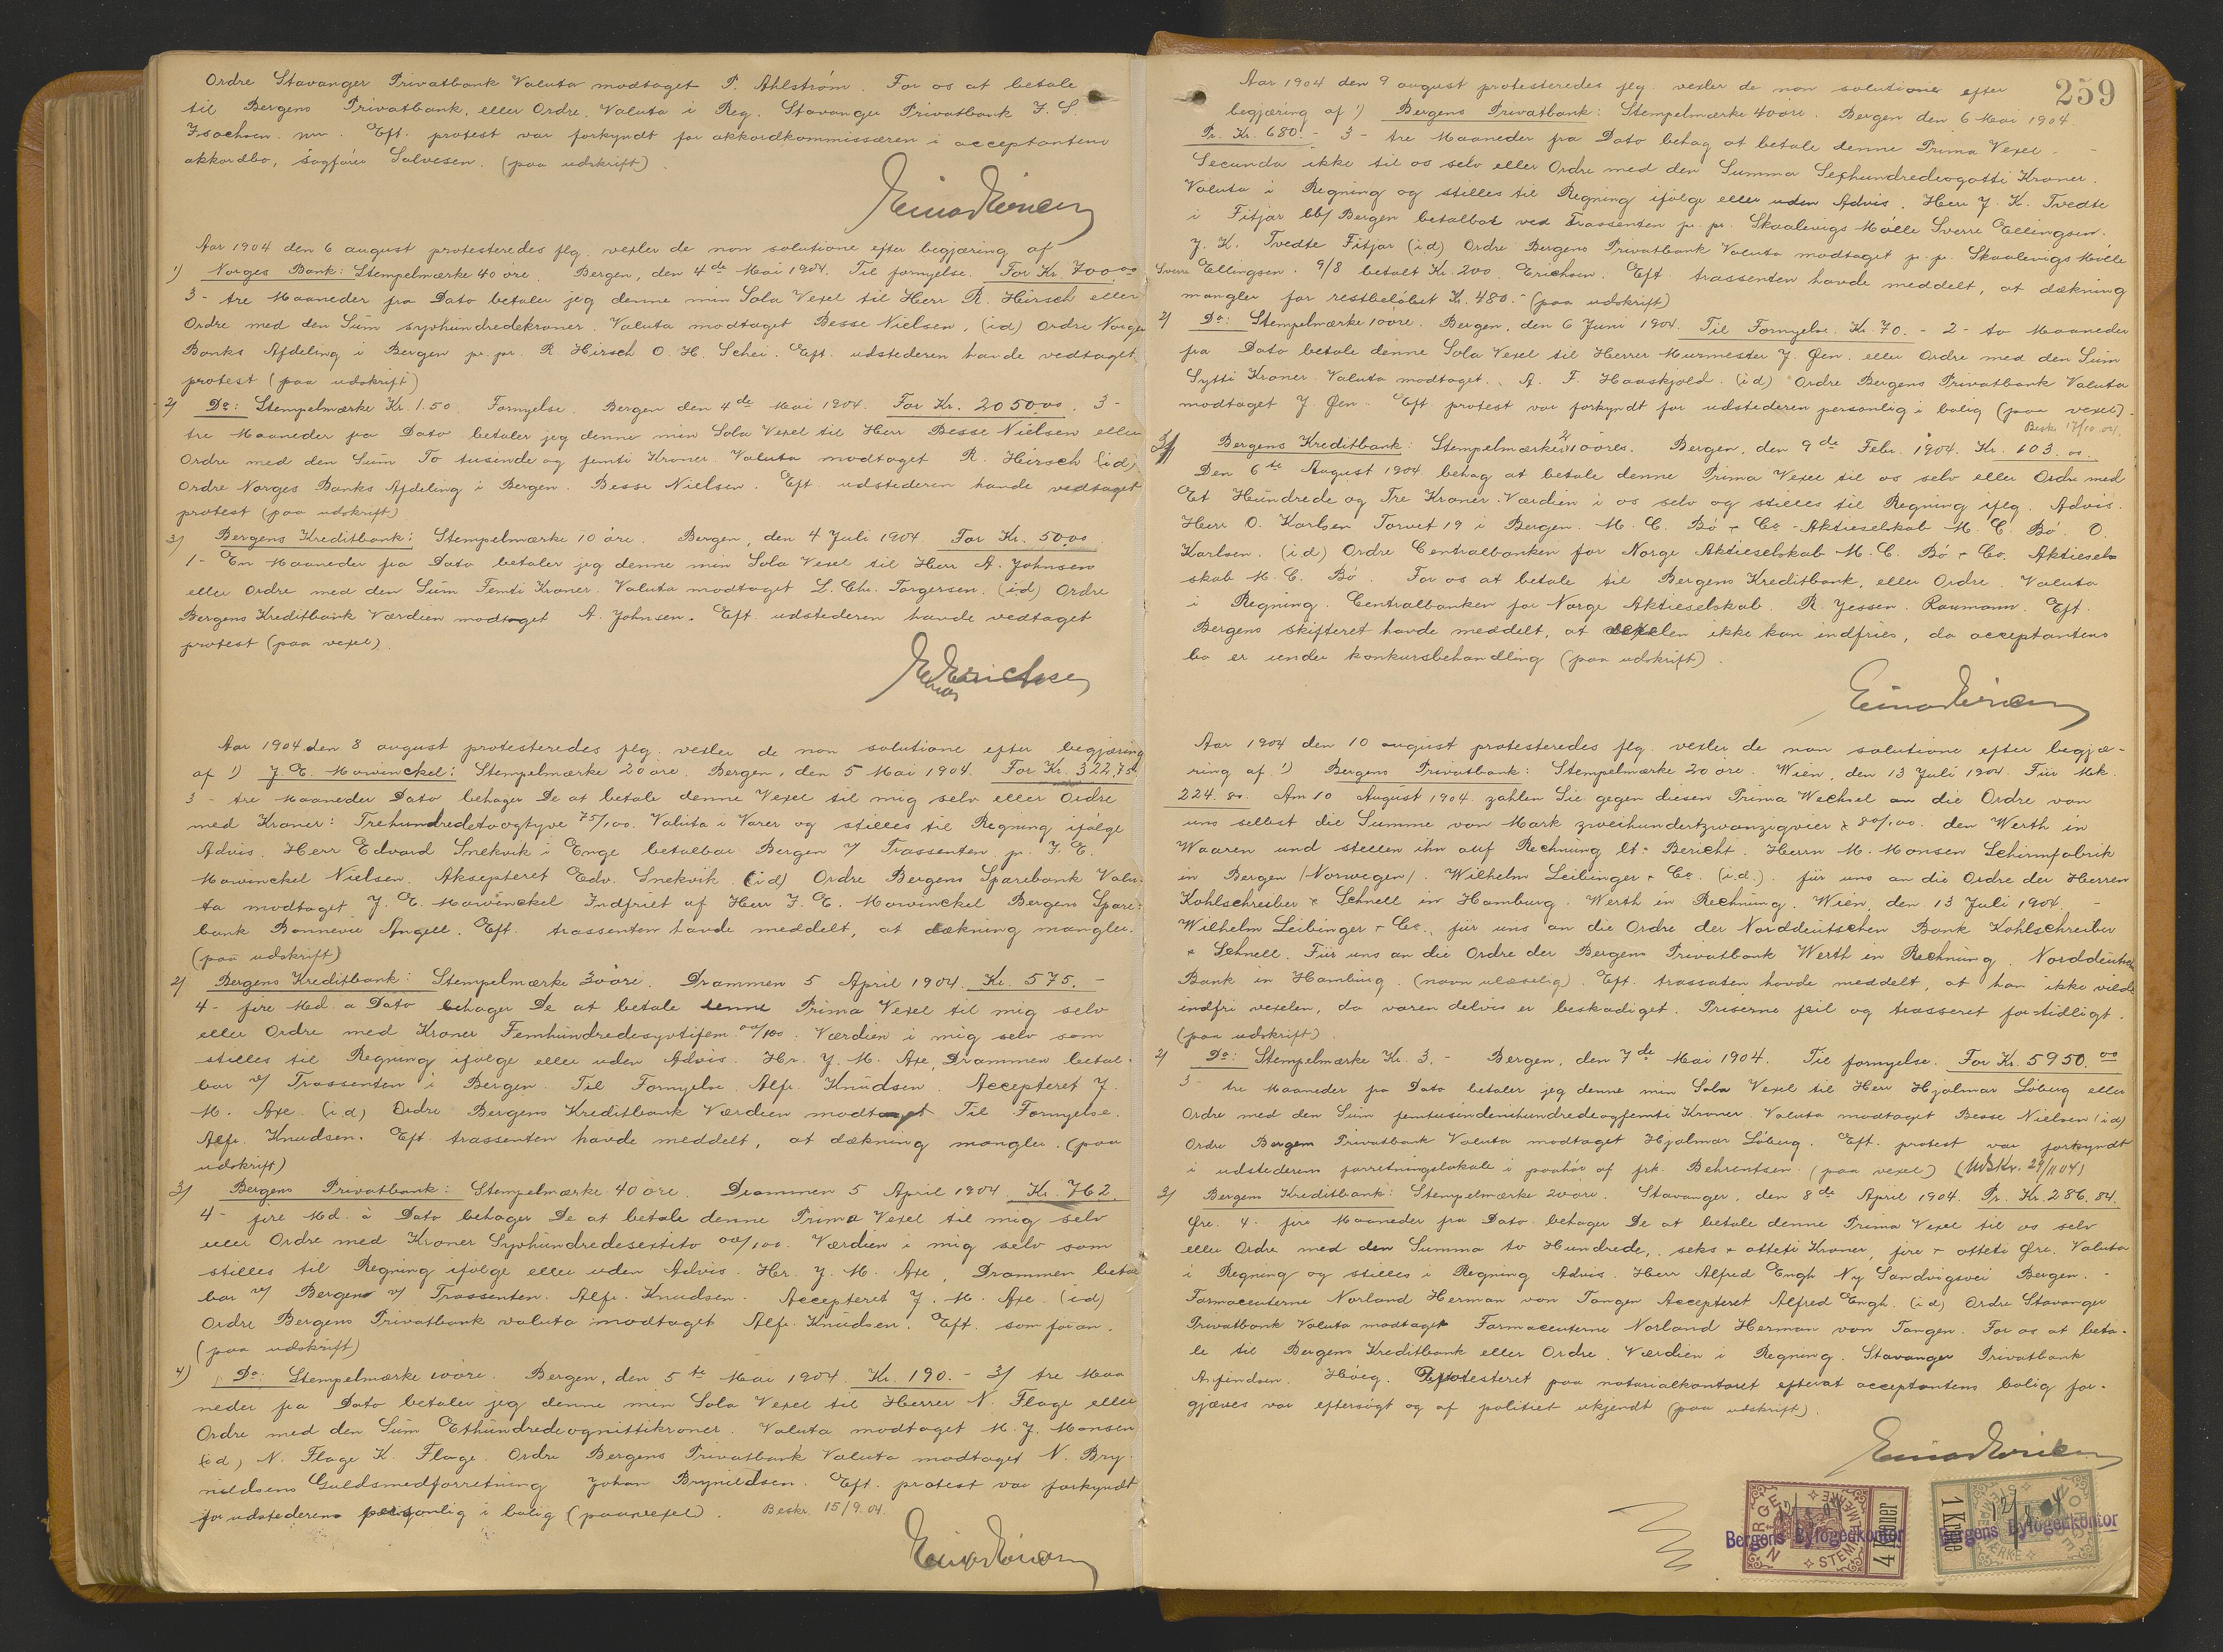 Ordre Stavanger Privatbank Valuta modtaget P. Ahlstrøm. For os at betale
til Bergens Privatbank, eller Ordre. Valuta i Reg. Stavanger Privatbank J. S.
Isachsen. nu. Eft. protest var forkyndt for akkordkommissæren i acceptantens
akkordbo, sagfører Salvesen. (paa udskrift).
Aar 1904 den 6 august protesteredes flg. vexler de non solutione efter begjæring af
1) Norges Bank: Stempelmærke 40 øre. Bergen, den 4de Mai 1904. Til fornyelse. For Kr. 700.00
3 - tre Maaneder fra Dato betaler jeg denne min Sola Vexel til Herr R. Hirsch eller
Ordre med den Sum syvhundredekroner. Valuta modtaget Besse Nielsen, (id) Ordre Norges
Banks Afdeling i Bergen pr. pr. R. Hirsch O. H. Schei. Eft. udstederen havde vedtaget
protest (paa udskrift)
2) Do: Stempelmærke Kr. 1.50. Fornyelse. Bergen den 4de Mai 1904. For Kr. 2050.00. 3-
tre Maaneder fra Dato betaler jeg denne min Sola Vexel til Herr Besse Nielsen eller
Ordre med den Sum To tusinde og femti Kroner. Valuta modtaget R. Hirsch (id)
Ordre Norges Banks Afdeling i Bergen. Besse Nielsen. Eft. udstederen havde vedtaget
protest (paa udskrift)
3) Bergens Kreditbank: Stempelmærke 10 øre. Bergen, den 4 Juli 1904 For Kr. 50.00
1- En Maaneder fra Dato betaler jeg denne min Sola Vexel til Herr A. Johnsen
eller Ordre med den Sum Femti Kroner. Valuta modtaget L. Chr. Torgersen. (id) Ordre
Bergens Kreditbank Værdien modtaget A. Johnsen. Eft. udstederen havde vedtaget
protest (paa vexel).
E Erichsen
Aar 1904 den 8 august protesteredes flg. vexler de non solutione efter begjæring
af 1) J. E. Mowinckel: Stempelmærke 20 øre. Bergen, den 5 Mai 1904. For Kr. 322,75
3 - tre Maaneder Dato behager De at betale denne Vexel til mig selv eller Ordre
med Kroner: Trehundredetoogtyve 75/100. Valuta i Varer og stilles til Regning ifølge
Advis. Herr Edvard Snekvik i Enge betalbar Bergen v/ Trassenten pr. J. E.
Mowinckel Nielsen. Aksepteret Edv. Snekvik. (id) Ordre Bergens Sparebank Valu-
ta modtaget J. E. Mowinckel Indfriet af Herr J. E. Mowinckel Bergens Spare-
bank Bonnevie Angell. Eft. trassenten havde meddelt, at dækning mangler.
(paa udskrift)
2) Bergens Kreditbank: Stempelmærke 30 øre. Drammen 5 April 1904. Kr. 575. -
4 - fire Md. a Dato behager De at betale denne Prima Vexel til mig selv
eller Ordre med Kroner Femhundredesyvtifem 00/100. Værdien i mig selv som
stilles til Regning ifølge eller uden Advis. Hr. J. M. Axe, Drammen betal-
bar v/ Trassenten i Bergen. Til Fornyelse. Alfr. Knudsen. Accepteret J.
M. Axe. (id) Ordre Bergens Kreditbank Værdien modtaget Til Fornyelse.
Alfr. Knudsen. Eft. trassenten havde meddelt, at dækning mangler. (paa
udskrift)
3) Bergens Privatbank: Stempelmærke 40 øre. Drammen 5 April 1904. Kr. 762.
4 - fire Md. à Dato behager De at betale denne Prima Vexel til mig selv
eller Ordre med Kroner Syvhundredesextito 00/100. Værdien i mig selv som
stilles til Regning ifølge eller uden Advis. Hr. J. M. Axe, Drammen betal
bar v/ Bergens v/ Trassenten. Alfr. Knudsen. Accepteret J. M. Axe. (id)
Ordre Bergens Privatbank valuta modtaget Alfr. Knudsen. Eft. som foran.
(paa udskrift)
4) Do: Stempelmærke 10 øre. Bergen, den 5te Mai 1904. Kr. 190. - 3/ tre Maa
neder fra Dato betaler jeg denne min Sola Vexel til Herrer N. Flage eller
Ordre med den Sum Ethundredeognittikroner. Valuta modtaget M. J. Monsen
(id) N. Flage K. Flage. Ordre Bergens Privatbank Valuta modtaget N. Bry-
nildsens Guldsmedforretning Johan Brynildsen. Eft. protest var forkyndt
for udstederens personlig i bolig (paa vexel). Beskr. 15/9.04.
259
Aar 1904 den 9 august protesteredes flg. vexler de non solutione efter
begjæring af 1) Bergens Privatbank: Stempelmærke 40 øre. Bergen den 6 Mai 1904.
Pr. Kr. 680. - 3 - tre Maaneder fra Dato behag at betale denne Prima Vexel -
Secunda ikke til os selv eller Ordre med den Summa Sexhundredeogotti Kroner.
Valuta i Regning og stilles til Regning ifølge eller uden Advis. Herr J. K. Tvedte
i Fitjar bb/ Bergen betalbar ved Trassenten pr. pr. Skaalevigs Mølle Sverre Ellingsen.
J. K. Tvedte Fitjar (id) Ordre Bergens Privatbank Valuta modtaget pr. pr. Skaalevigs Mølle
Sverre Ellingsen. 9/8 betalt Kr. 200. Erichsen. Eft. trassenten havde meddelt, at dækning
mangler for restbeløbet Kr. 480. - (paa udskrift)
2) Do: Stempelmærke 10 øre. Bergen, den 6 Juni 1904. Til Fornyelse. Kr. 70. - 2 - to Maaneder
fra Dato betale denne Sola Vexel til Herrer Murmester J. Øen. eller Ordre med den Sum
Sytti Kroner. Valuta modtaget. A. F. Haaskjold. (id) Ordre Bergens Privatbank Valuta
modtaget J. Øen. Eft. protest var forkyndt for udstederen personlig i bolig (paa vexel).
Beskr. 17/10.04.
3) Bergens Kreditbank: Stempelmærker 2/ 10 øres. Bergen, den 9de Febr. 1904. Kr. 103.00.
Den 6te August 1904. behag at betale denne Prima Vexel til os selv eller Ordre med
Et Hundrede og Tre Kroner. Værdien i os selv og stilles til Regning iflg. Advis.
Herr O. Karlsen Torvet 19 i Bergen. M. C. Bø & Co - Aktieselskab M. C. Bø. O.
Karlsen. (id) Ordre Centralbanken for Norge Aktieselskab M. C. Bø & Co. Aktiesel-
skab M. C. Bø. For os at betale til Bergens Kreditbank, eller Ordre. Valuta
i Regning. Centralbanken for Norge Aktieselskab. R. Jessen. Raumann. Eft.
Bergens skifteret havde meddelt, at vexelen ikke kan indfries, da acceptantens
bo er under konkursbehandling (paa udskrift).
Aar 1904 den 10 august protesteredes flg. vexler de non solutione efter begjæ-
ring af 1) Bergens Privatbank: Stempelmærke 20 øre. Wien, den 13 Juli 1904. Für Mk.
224.80. Am 10 August 1904. zahlen Sie gegen diesen Prima Wechsel an die Ordre von
uns selbst die Summe von Mark zweihundertzwanzigvier & 80/100. den Werth in
Waaren und stellen ihn auf Rechnung lt: Bericht. Herrn M. Monsen Schirmfabrik
in Bergen /Norwegen/. Wilhelm Leibinger & Co. (i.d.) für uns an die Ordre der Herren
Kohlschreiber & Schnell in Hamburg. Werth in Rechnung. Wien, den 13 Juli 1904. -
Wilhelm Leibinger & Co., für uns an die Ordre der Norddeutschen Bank Kohlschreiber
& Schnell. Für uns an die Ordre der Bergens Privatbank Werth in Rechnung. Norddeutsche
Bank in Hamburg. (navn ulæselig). Eft. trassaten havde meddelt, at han ikke vilde
indfri vexelen, da varen delvis er beskadiget. Priserne feil og trasseret for tidligt.
(paa udskrift)
2) Do: Stempelmærke Kr. 3. - Bergen, den 7de Mai 1904. Til fornyelse. For Kr. 5950.00
3 - tre Maaneder fra Dato betaler jeg denne min Sola Vexel til Herr Hjalmar Løberg eller
Ordre med den Sum femtusindenihundredeogfemti Kroner. Valuta modtaget Besse Nielsen (id)
Ordre Bergens Privatbank Valuta modtaget Hjalmar Løberg. Eft. protest var forkyndt
i udstederens forretningslokale i paahør af frk. Behrentsen (paa vexel) (Udskr. 29/11 04)
3) Bergens Kreditbank: Stempelmærke 20 øre. Stavanger, den 8de April 1904. Pr. Kr. 286.84.
Øre. 4. fire Maaneder fra Dato behager De at betale denne Prima Vexel til os selv
eller Ordre med den Summa to Hundrede, seks & otteti Kroner, fire & otteti Øre. Valuta
i Regning og stilles i Regning Advis. Herr Alfred Engh Ny Sandvigsvei Bergen. -
Farmaceuterne Norland Herman von Tangen Accepteret Alfred Engh. (id) Ordre Stavanger
Privatbank Valuta modtaget Farmaceuterne Norland Herman von Tangen. For os at beta-
le til Bergens Kreditbank eller Ordre. Værdien i Regning. Stavanger Privatbank
Arfindsen. Høeg. Protesteret paa notarialkontoret efterat acceptantens bolig for-
gjæves var eftersøgt og af politiet ukjendt (paa udskrift).
NORGE STEMPELMÆRKE 4 Kroner
Bergens Byfogedkontor
1 Krone NORGE STEMPELMÆRKE
Bergens Byfogedkontor